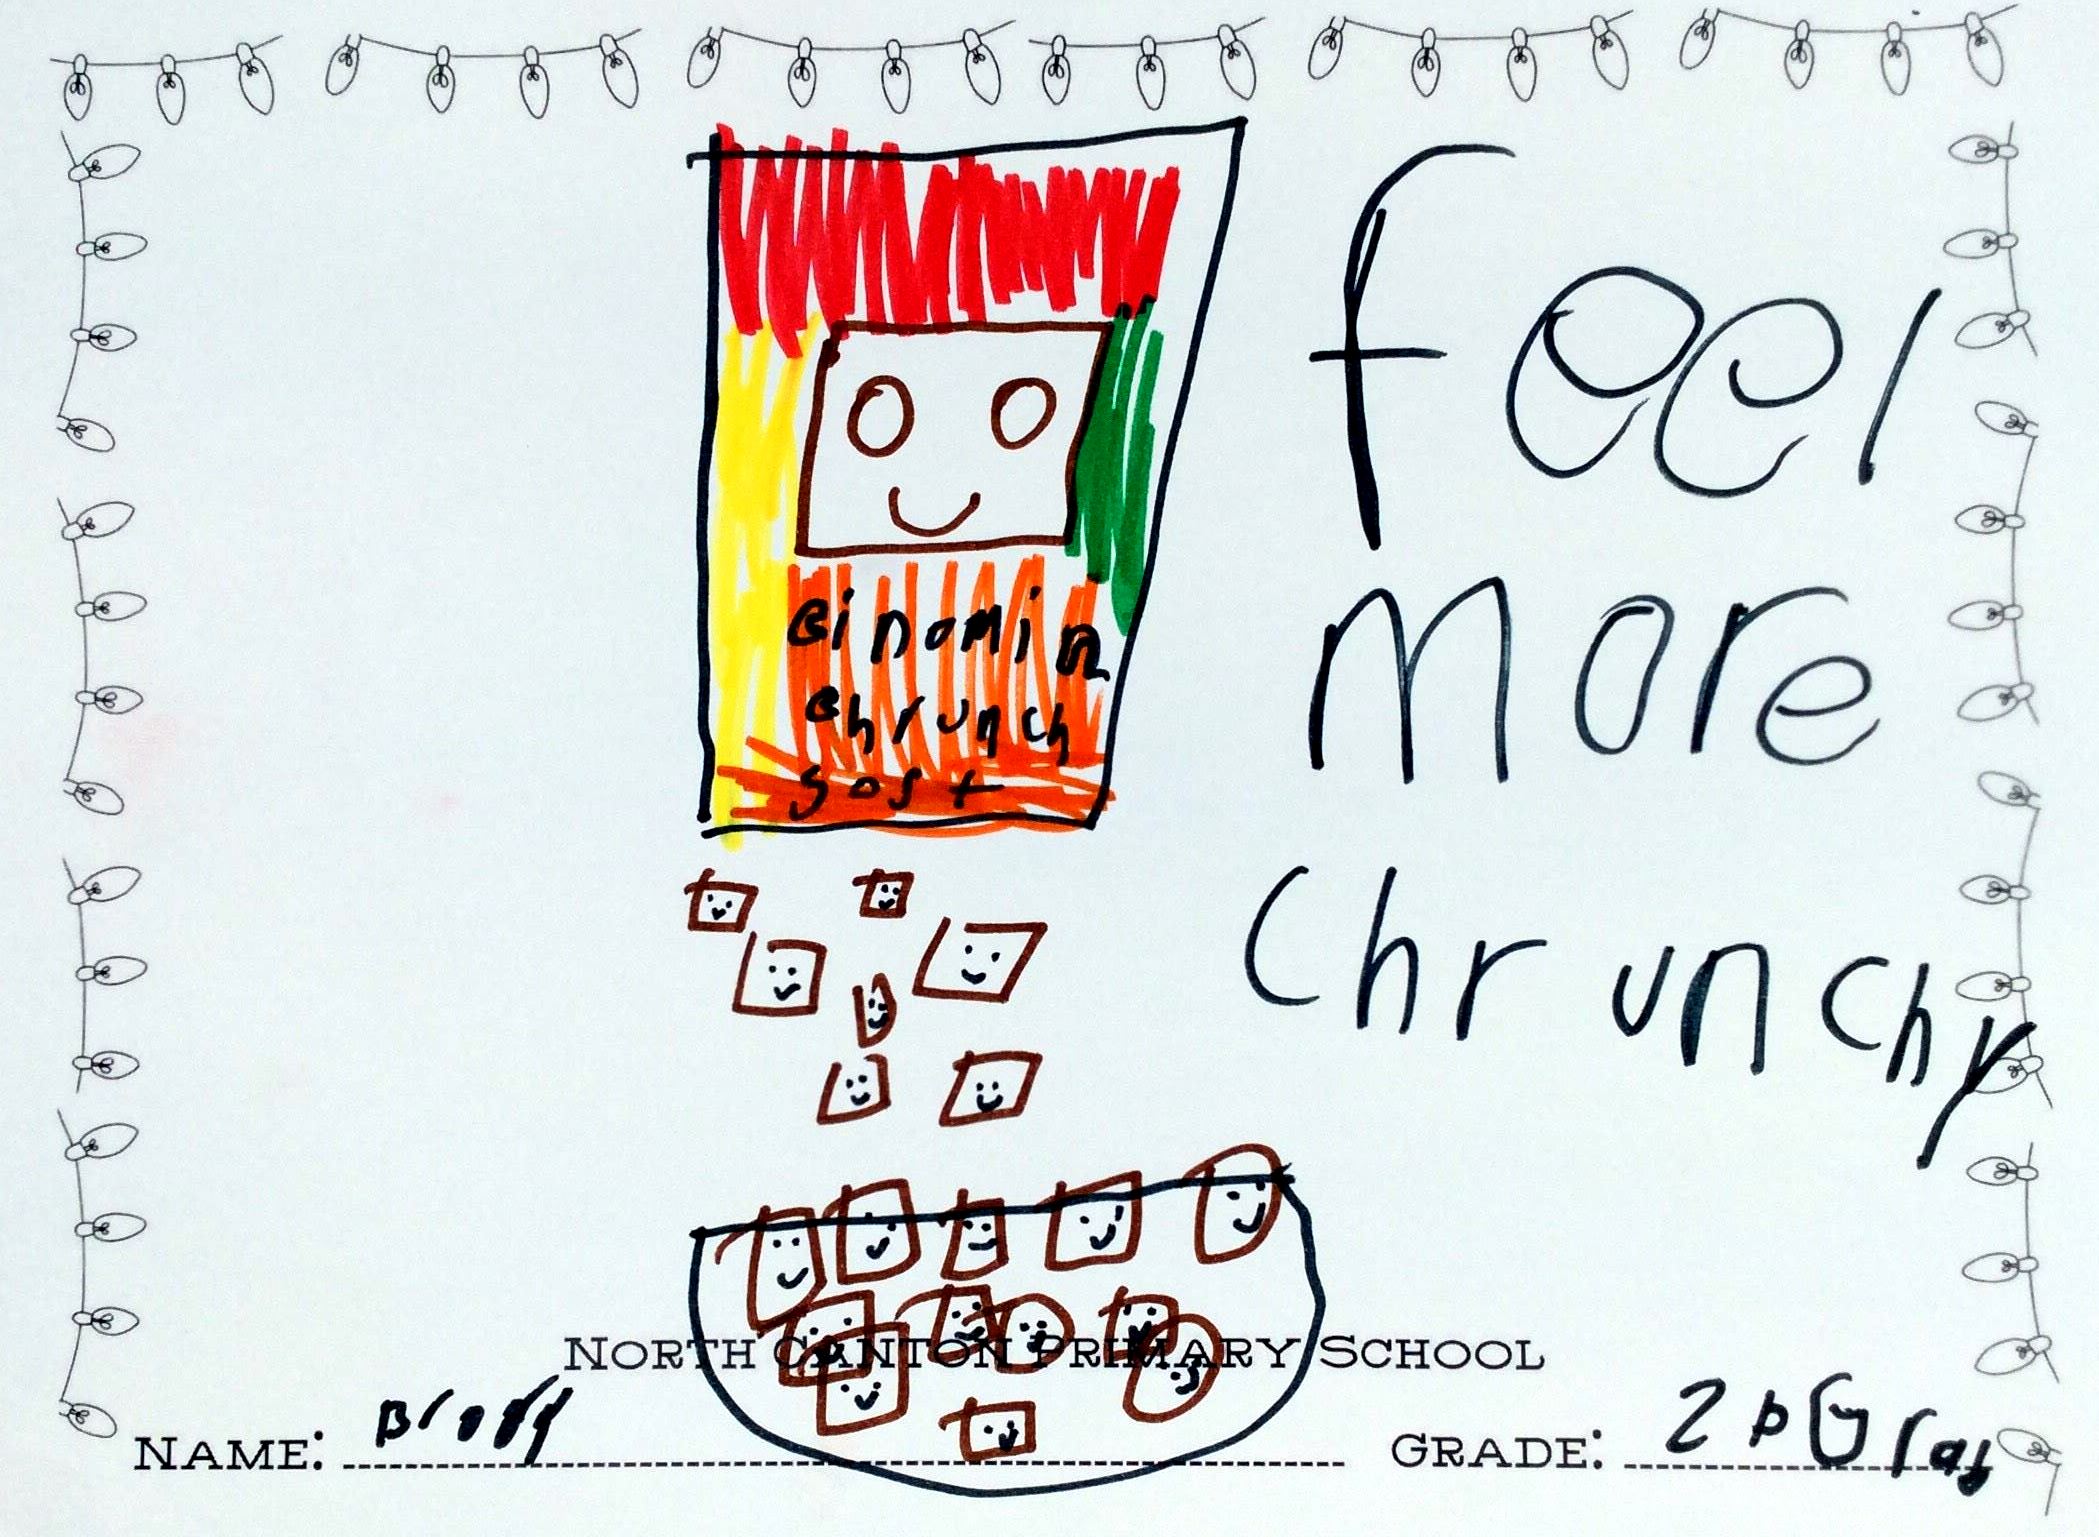 feel
more
chrunchy
cinomin
chrunch
sost
NORTH CANTON PRIMARY SCHOOL
NAME: Brody
GRADE: 2